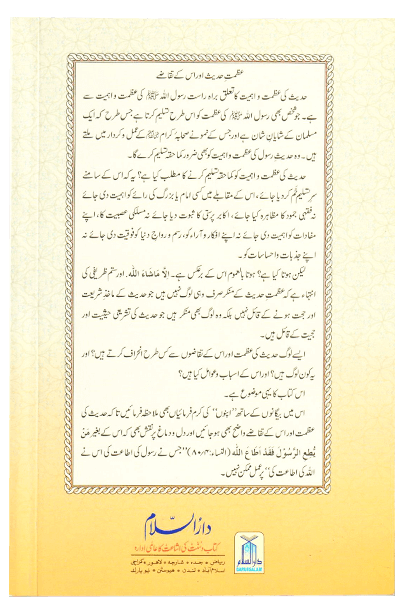 عظمتِ حدیث اور اس کے تقاضے
حدیث کی عظمت و اہمیت کا تعلق براہ راست رسول اللہ ﷺ کی عظمت و اہمیت سے
ہے۔ جو شخص بھی رسول اللہ ﷺ کی عظمت کو اس طرح تسلیم کرتا ہے جس طرح کہ ایک
مسلمان کے شایان شان ہے اور جس کے نمونے صحابہ کرام کے عمل و کردار میں ملتے
ہیں۔ وہ حدیث رسول کی عظمت و اہمیت کو بھی ضرور کما حقہ تسلیم کرے گا۔
حدیث کی عظمت و اہمیت کو کما حقہ تسلیم کرنے کا مطلب کیا ہے؟ یہ کہ اس کے سامنے
سر تسلیم خم کر دیا جائے، اس کے مقابلے میں کسی امام یا بزرگ کی رائے کو اہمیت دی جائے
نہ فقہی جمود کا مظاہرہ کیا جائے، اکابر پرستی کا ثبوت دیا جائے نہ مسلکی عصبیت کا، اپنے
مفادات کو اہمیت دی جائے نہ اپنے افکار و آراء کو، رسم و رواجِ دنیا کو فوقیت دی جائے نہ
اپنے جذبات و احساسات کو۔
لیکن ہوتا کیا ہے؟ ہوتا بالعموم اس کے برعکس ہے۔ اِلَّا مَاشَاءَ اللّٰہ۔ اور ستم ظریفی کی
انتہا یہ ہے کہ عظمتِ حدیث کے منکر صرف وہی لوگ نہیں ہیں جو حدیث کے ماخذِ شریعت
اور حجت ہونے کے قائل نہیں بلکہ وہ لوگ بھی منکر ہیں جو حدیث کی تشریعی حیثیت اور
حجیت کے قائل ہیں۔
ایسے لوگ حدیث کی عظمت اور اس کے تقاضوں سے کس طرح انحراف کرتے ہیں؟ اور
یہ کون لوگ ہیں؟ اور اس کے اسباب و عوامل کیا ہیں؟
اس کتاب کا یہی موضوع ہے۔
اس میں بیگانوں کے ساتھ ”اپنوں“ کی کرم فرمائیاں بھی ملاحظہ فرمائیں تاکہ حدیث کی
عظمت اور اس کے تقاضے واضح بھی ہو جائیں اور دل و دماغ پر نقش بھی کہ اس کے بغیر مَنْ
یُّطِعِ الرَّسُوْلَ فَقَدْ اَطَاعَ اللّٰہَ (النساء:۸۰/۴) ”جس نے رسول کی اطاعت کی اس نے
اللہ کی اطاعت کی“ پر عمل ممکن نہیں۔
دارالسلام
کتاب و سنت کی اشاعت کا عالمی ادارہ
ریاض • جدہ • شارجہ • لاہور • کراچی
اسلام آباد • لندن • ہیوسٹن • نیو یارک
دارالسلام
DARUSSALAM